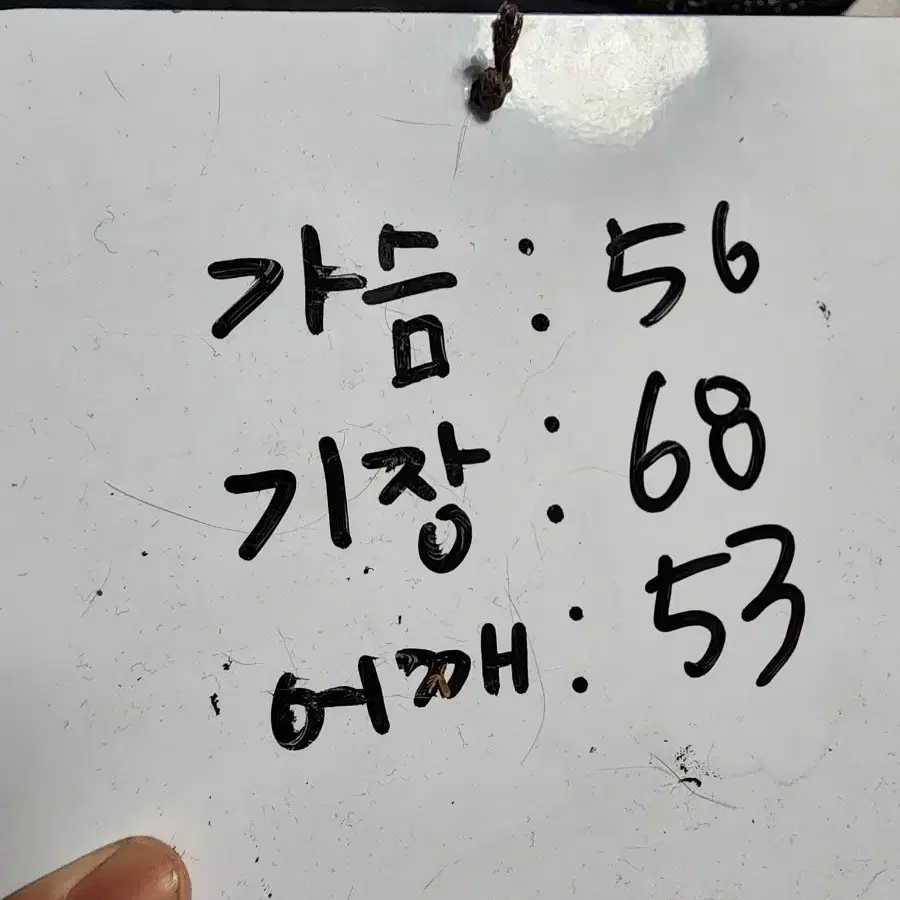 가슴 : 56
기장 : 68
어깨 : 53